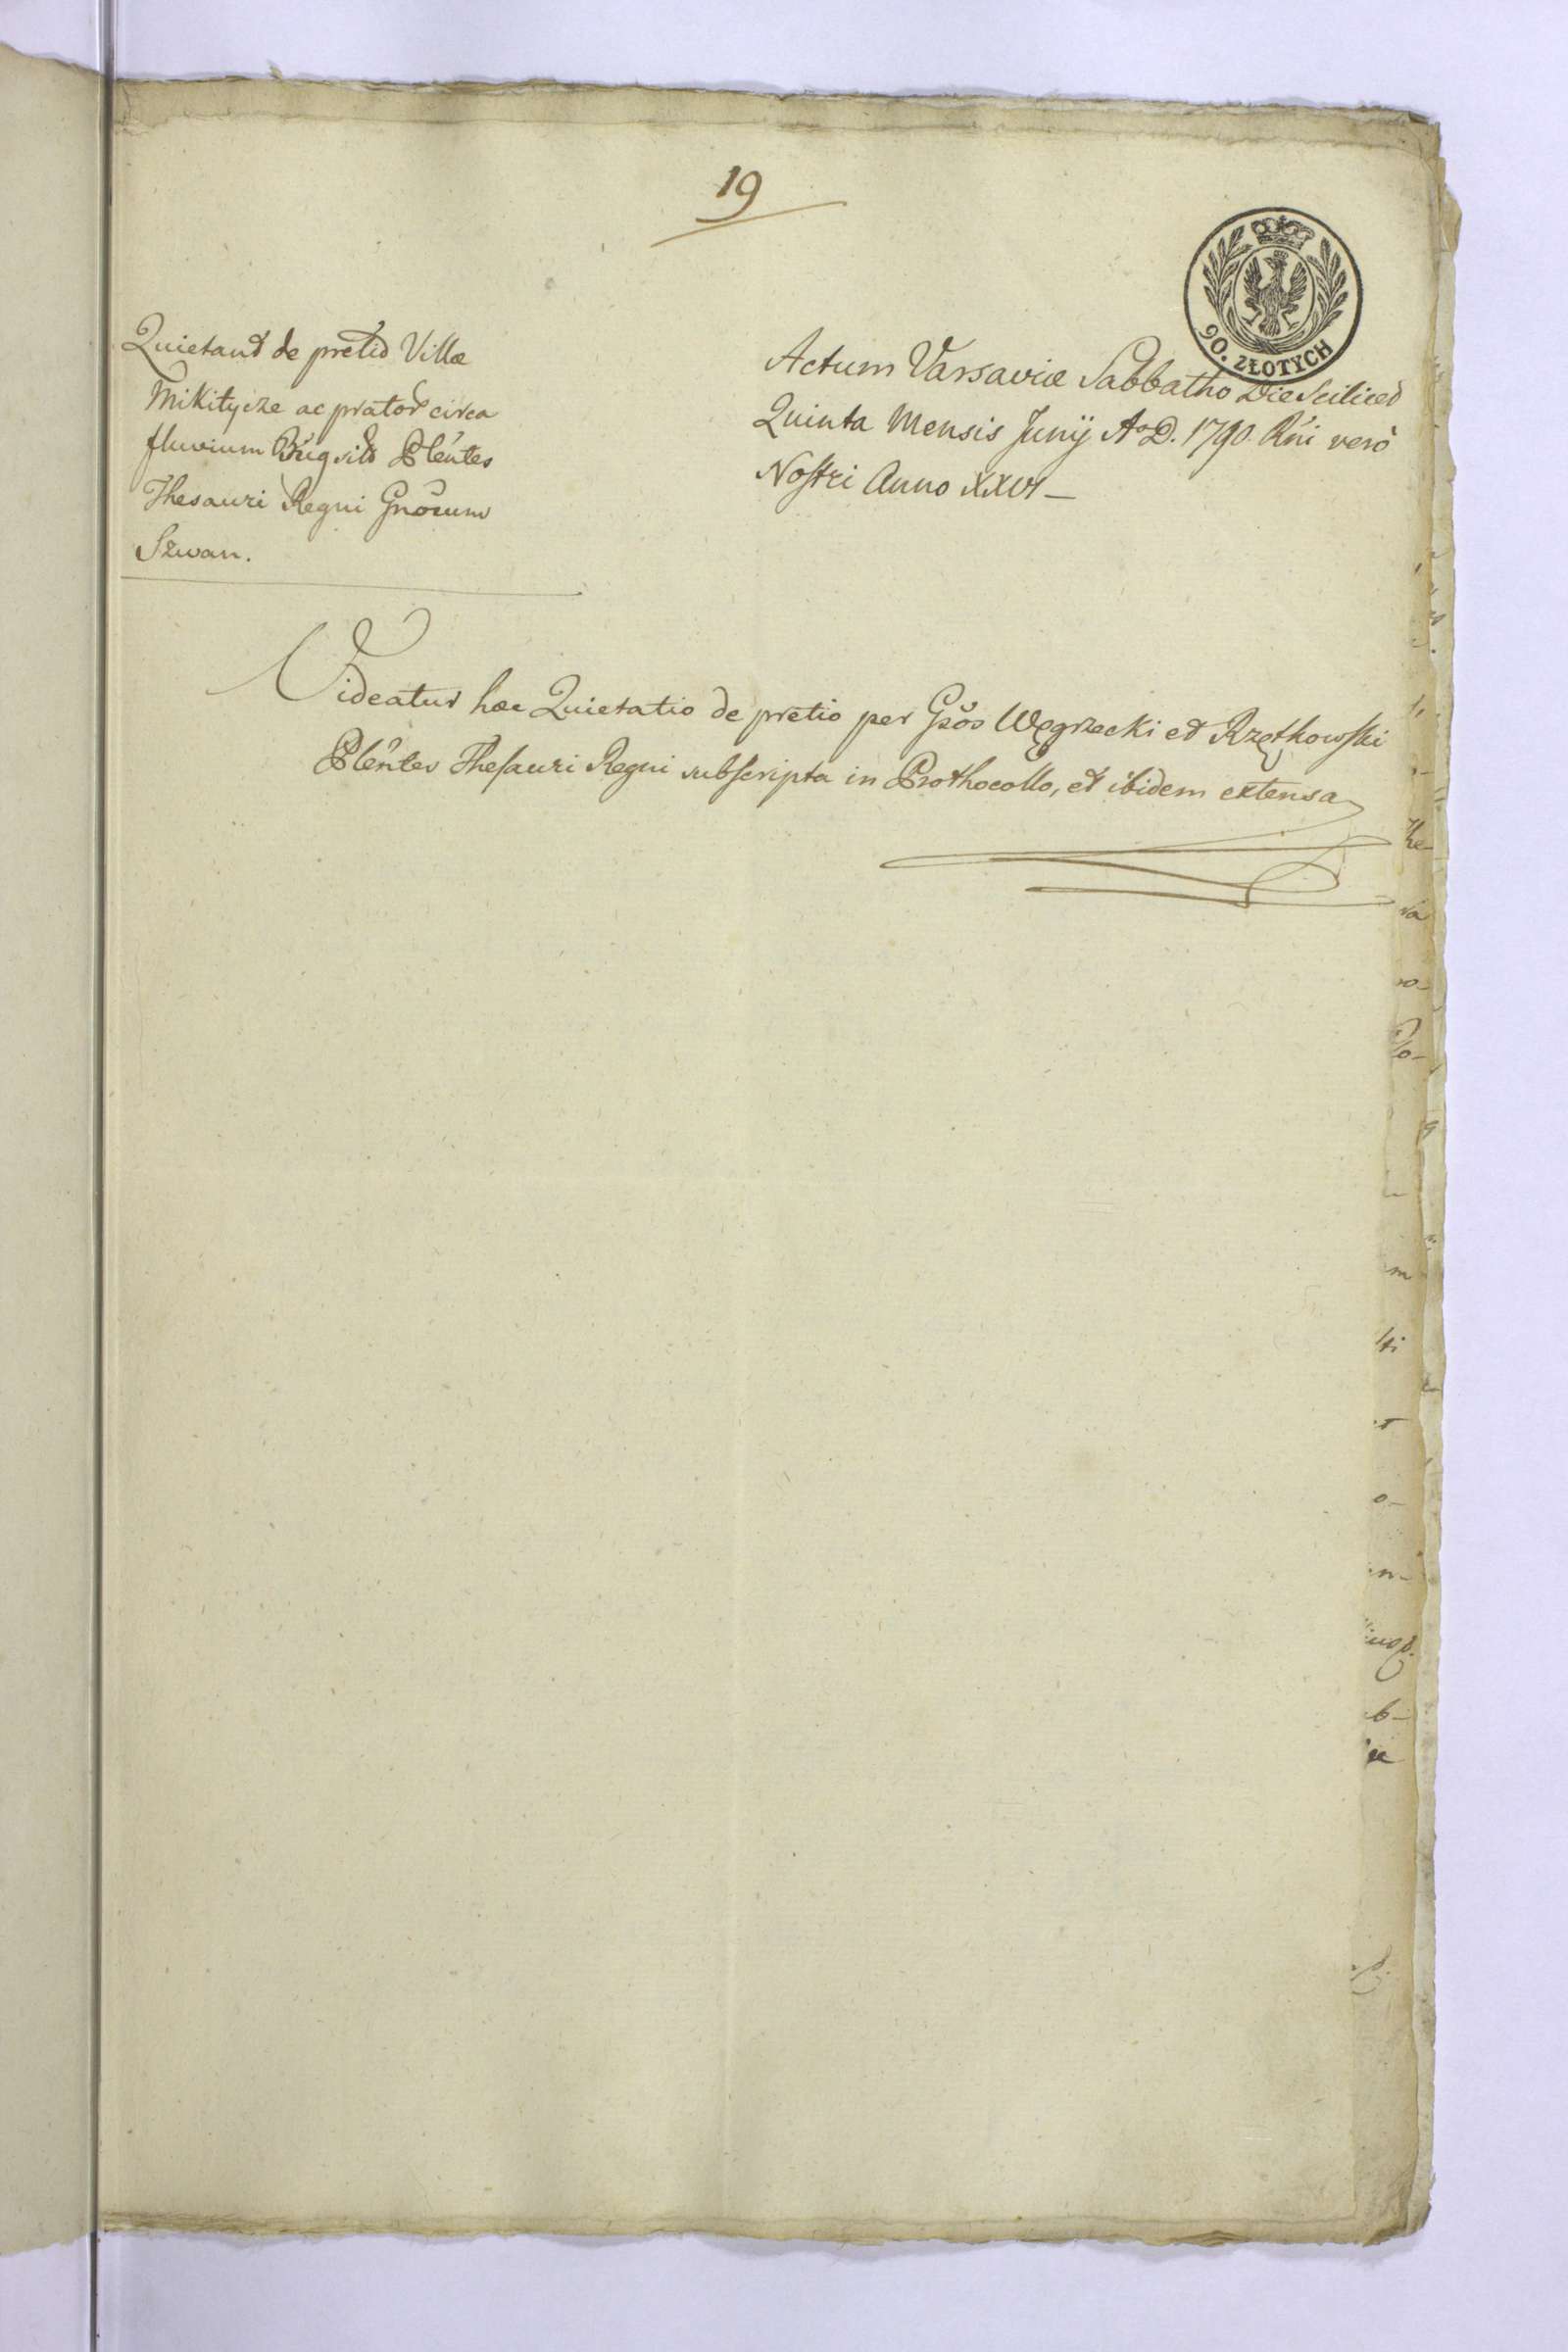 19
90. ZŁOTYCH
Quietant de pretio Villæ
Mikitycze ac prator circa
fluvium Bug sit Plentes
Thesauri Regni Gnorum
Szwan.
Actum Varsaviæ Sabbatho Die Scilicet
Quinta Mensis Junij A° D. 1790. Rni verò
Nostri Anno XXVI
Videatur hæc Quietatio de pretio per Gsos Węgrzecki et Rzętkowski
Plentes Thesauri Regni subscripta in Prothocollo, et ibidem extensa